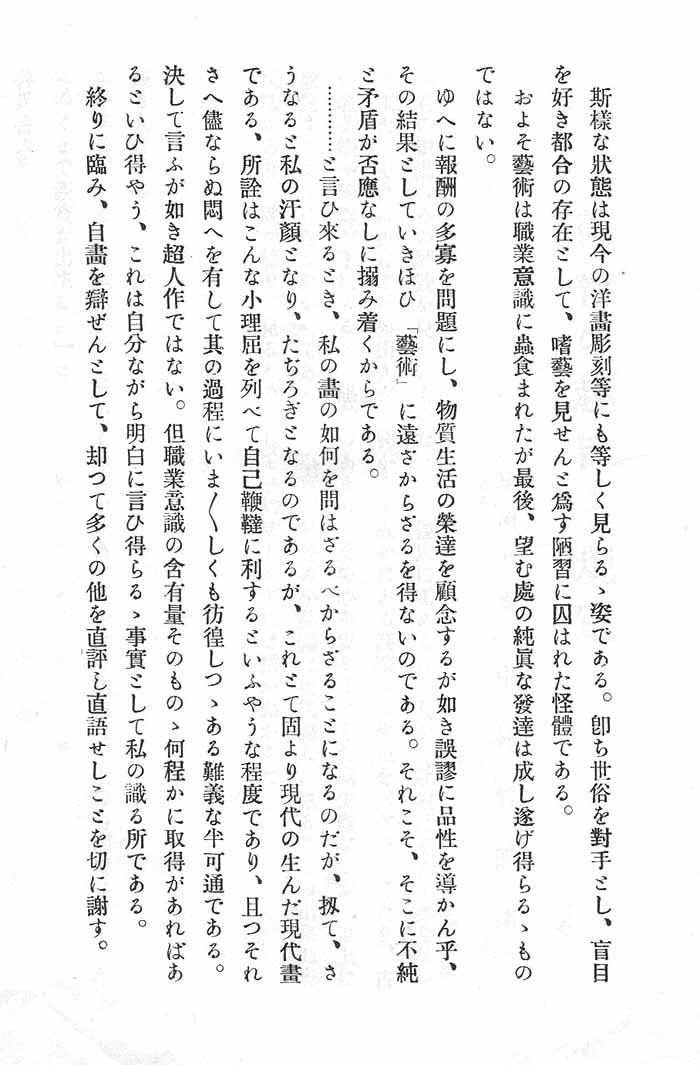 斯樣な狀態は現今の洋畫彫刻等にも等しく見らるゝ姿である。卽ち世俗を對手とし、盲目
を好き都合の存在として、嗜藝を見せんと爲す陋習に囚はれた怪體である。
およそ藝術は職業意識に蟲食まれたが最後、望む處の純眞な發達は成し遂げ得らるゝもの
ではない。
ゆへに報酬の多寡を問題にし、物質生活の榮達を顧念するが如き誤謬に品性を導かん乎、
その結果としていきほひ「藝術」に遠ざからざるを得ないのである。それこそ、そこに不純
と矛盾が否應なしに搦み着くからである。
…………と言ひ來るとき、私の畫の如何を問はざるべからざることになるのだが、扨て、さ
うなると私の汗顏となり、たぢろぎとなるのであるが、これとて固より現代の生んだ現代畫
である、所詮はこんな小理屈を列べて自己鞭韃に利するといふやうな程度であり、且つそれ
さへ儘ならぬ悶へを有して其の過程にいま〱しくも彷徨しつゝある難義な半可通である。
決して言ふが如き超人作ではない。但職業意識の含有量そのものゝ何程かに取得があればあ
るといひ得やう、これは自分ながら明白に言ひ得らるゝ事實として私の識る所である。
終りに臨み、自畫を辯ぜんとして、却つて多くの他を直評し直語せしことを切に謝す。